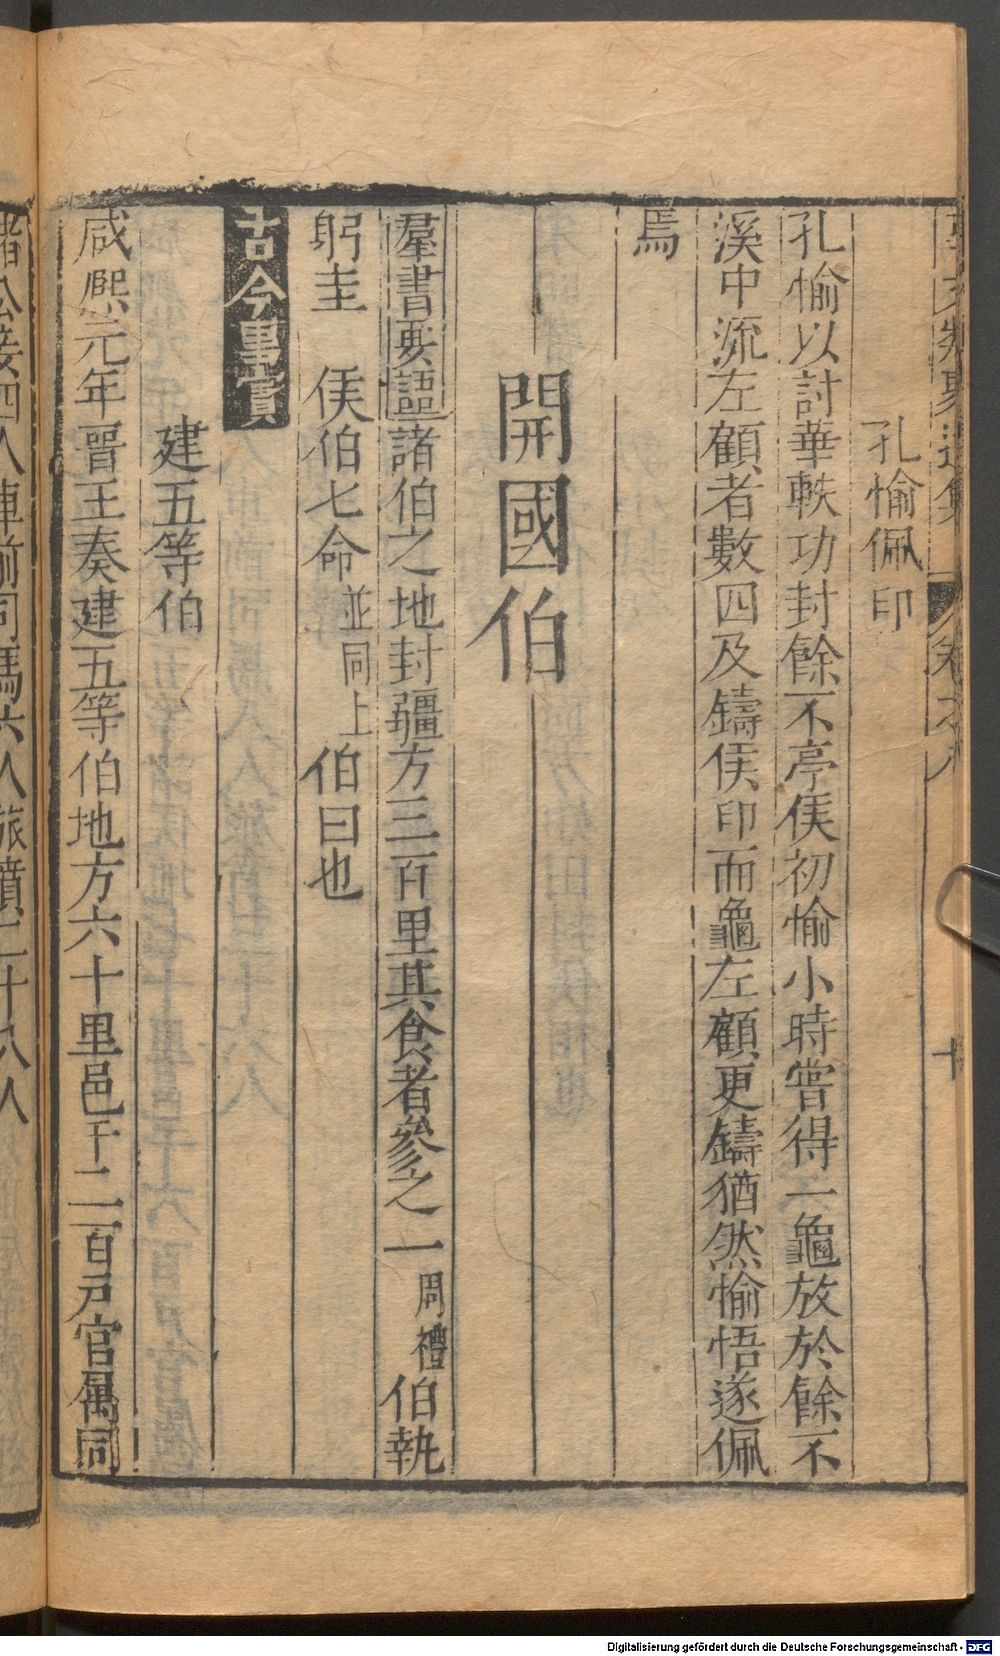 孔愉佩印
孔愉以討華軼功封餘不亭侯初愉小時嘗得一龜放於餘不
溪中流左顧者數四及鑄侯印而龜左顧更鑄猶然愉悟遂佩
焉
開國伯
羣書要語諸伯之地封疆方三百里其食者參之一周禮伯執
躬圭　侯伯七命並同上伯曰也
古今事實
建五等伯
咸熙元年晉王奏建五等伯地方六十里邑千二百戶官属同
諸公接四人車前司馬六人旅賁二十八人
Digitalisierung gefördert durch die Deutsche Forschungsgemeinschaft - DFG